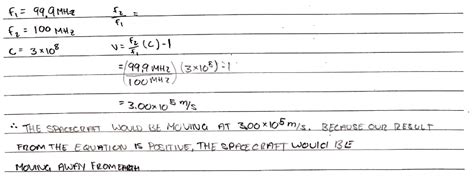 f₁ = 99.9 MHz f₂/f₁ =
f₂ = 100 MHz
c = 3×10⁸ v = f₂/f₁ (c) -1
= (99.9 MHz / 100 MHz) (3×10⁸) -1
= 3.00×10⁵ m/s
∴ THE SPACECRAFT WOULD BE MOVING AT 3.00×10⁵ m/s. BECAUSE OUR RESULT
FROM THE EQUATION IS POSITIVE, THE SPACECRAFT WOULD BE
MOVING AWAY FROM EARTH